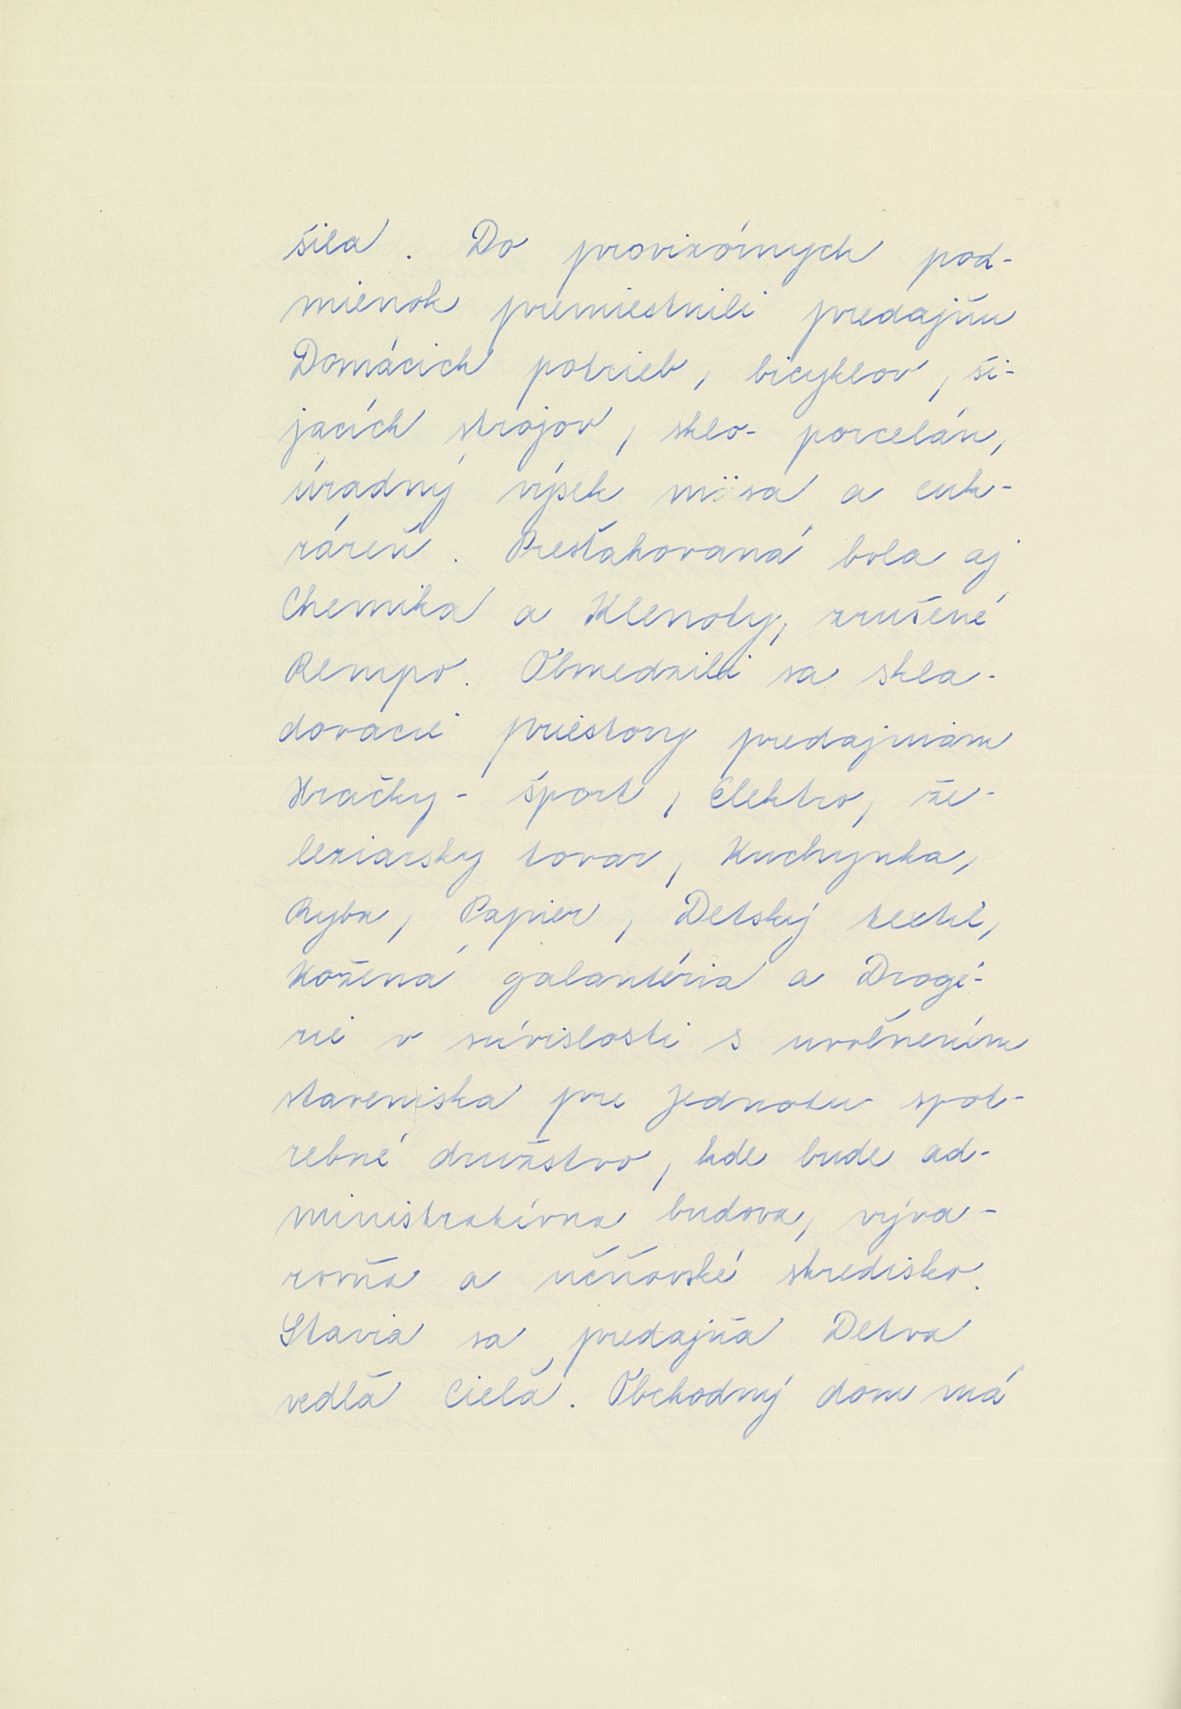 šila. Do provizórnych pod-
mienok premiestnili predajňu
Domácich potrieb, bicyklov, ši-
jacích strojov, sklo- porcelán,
úradný výsek mäsa a cuk-
ráreň. Presťahovaná bola aj
Chemika a Klenoty, zrušené
Rempo. Obmedzili sa skla-
dovacie priestory predajniam
Hračky- šport, Elektro, že-
leziarsky tovar, Kuchynka,
Ryba, Papier, Detský textil,
Kožená galantéria a Drogé-
rie v súvislosti s uvoľnením
staveniska pre Jednotu spot-
rebné družstvo, kde bude ad-
ministratívna budova, výva-
rovňa a učňovské stredisko.
Stavia sa predajňa Detva
vedľa Cieľa. Obchodný dom má